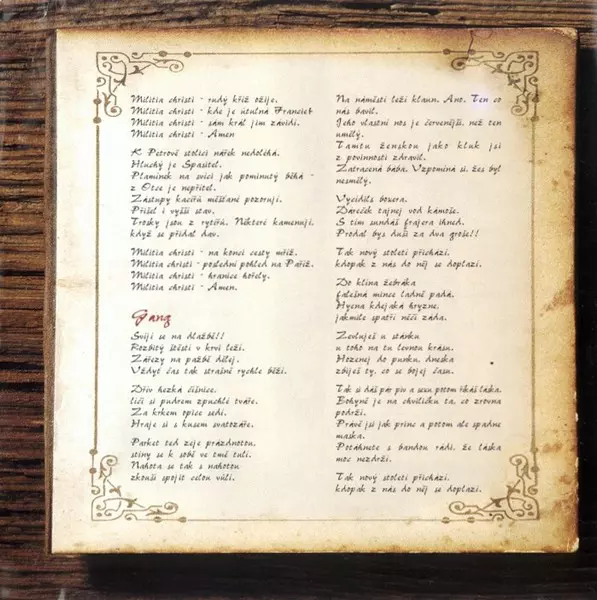 Militia christi - rudý kříž ožije,
Militia christi - kde je útulná Francie?
Militia christi - sám král jim závidí.
Militia christi - Amen
K Petrově stolici nářek nedoléhá.
Hluchý je Spasitel.
Plamínek na svíci jak pominutý běhá -
z Otce je nepřítel.
Zástupy kacířů měšťané pozorují.
Přišel i vyšší stav.
Trosky jsou z rytířů. Některé kamenují,
když se přidal dav.
Militia christi - na konci cesty mříž,
Militia christi - poslední pohled na Paříž.
Militia christi - hranice hořely.
Militia christi - Amen.
Gang
Svíjí se na dlažbě!!
Rozbitý štěstí v krvi leží.
Zářezy na pažbě dělej.
Vždyť čas tak strašně rychle běží.
Dřív hezká číšnice,
líčí si pudrem zpuchlí tváře.
Za krkem opice sedí.
Hraje si s kusem svatozáře.
Parket teď zeje prázdnotou,
stíny se k sobě ve tmě tulí.
Nahota se tak s nahotou
zkouší spojit celou vůlí.
Na náměstí leží klaun. Ano. Ten co
nás bavil.
Jeho vlastní nos je červenější, než ten
umělý.
Tamtu ženskou jako kluk jsi
z povinnosti zdravil.
Zatracená bába. Vzpomíná si, žes byl
nesmělý.
Vycídils boxera.
Dáreček tajnej vod kámoše.
S tím sundáš frajera ihned.
Prodal bys duši za dva groše!!
Tak nový století přichází,
kdopak z nás do něj se doplazí.
Do klína žebráka
falešná mince ladně padá.
Hyena kdejaká hryzne,
jakmile spatří něčí záda.
Zevluješ u stánku
u toho na tu levnou krásu.
Hozenej do punku, dneska
zbiješ ty, co se bojej času.
Tak si dáš pár piv a sexu potom říkáš láska.
Bohyně je na chviličku ta, co zrovna
podrží.
Právě jsi jak princ a potom ale spadne
maska.
Potáhnete s bandou rádi, že láska
moc nezdrží.
Tak nový století přichází,
kdopak z nás do něj se doplazí.